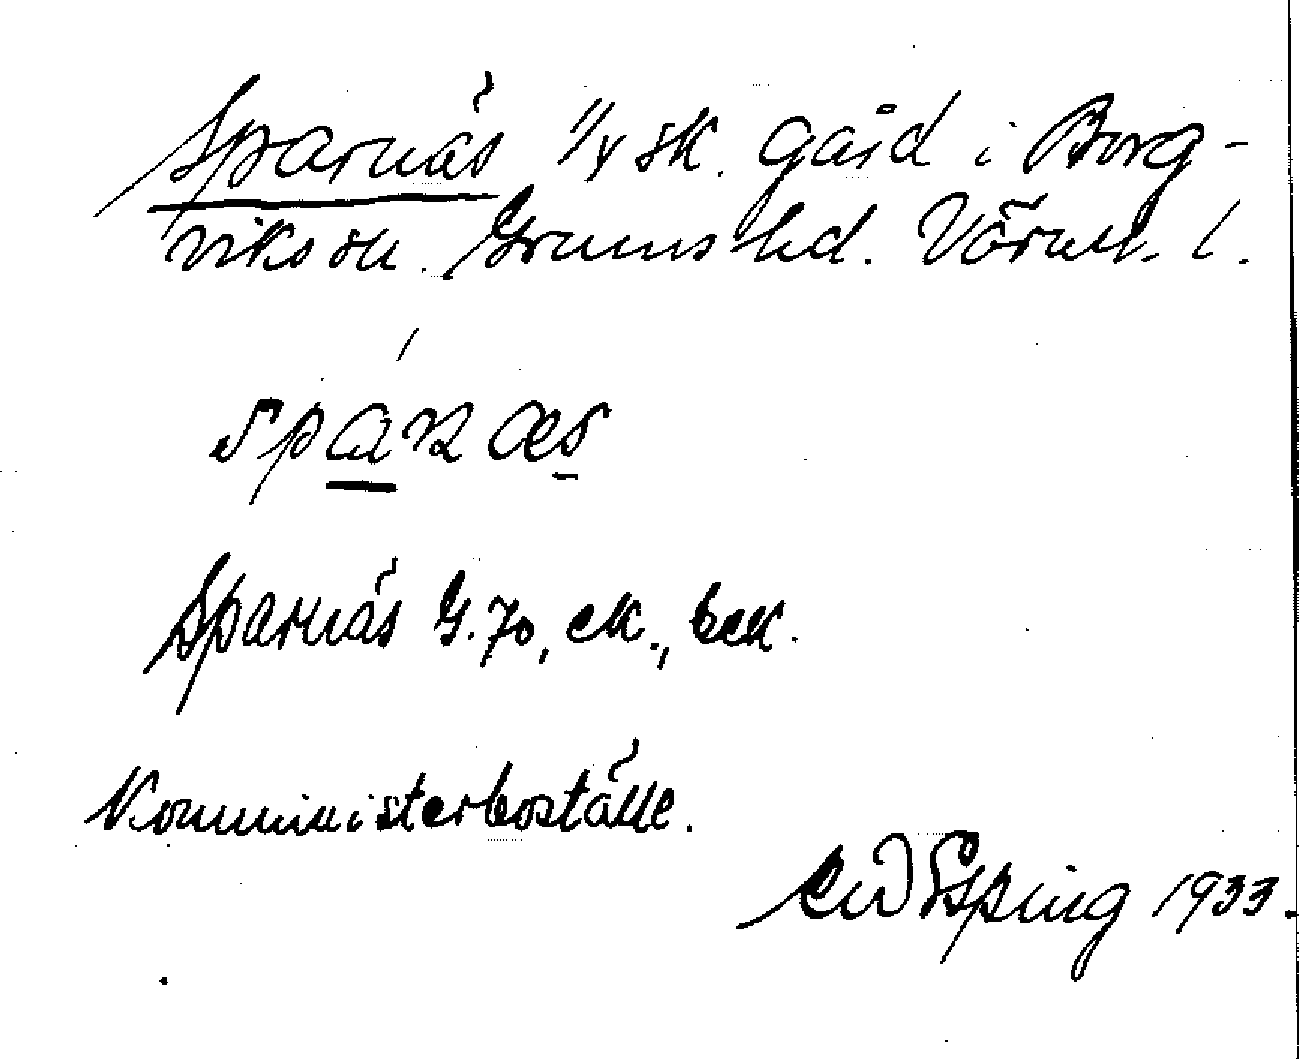 Sparnäs 1/4 sk. gård i Borg-
viks sn. Grums hd. Värml. l.
Sparnäs G.70, ek., bek.
Komministerboställe.
Erping 1933.